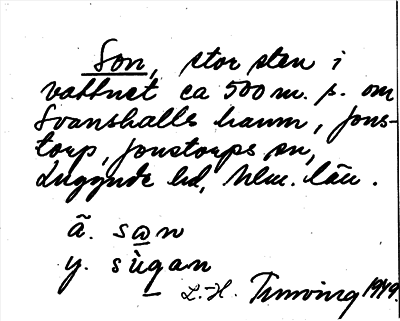 Son, stor sten i
vattnet ca 500 m. s. om
Svanshalls hamn, Jons-
torp, Jonstorps sn,
Luggude hd, Mlm. län.
ã. san
y. sùqan
L.-H. 1949.